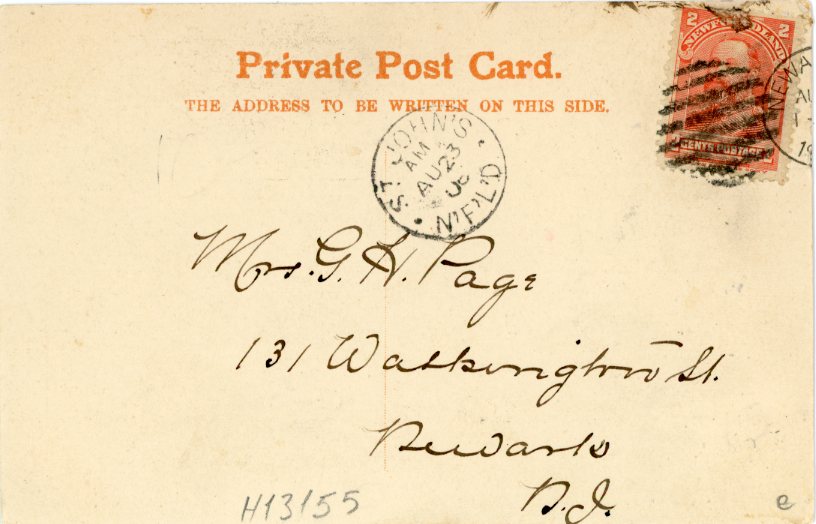 Private Post Card.
THE ADDRESS TO BE WRITTEN ON THIS SIDE.
2 NEWFOUNDLAND 2
CENTS POSTAGE
NEWA
AU
19
ST. JOHN'S
AM
AU 23
06
N'F'L'D
Mrs. G. H. Page
131 Washington St.
Newark
N.J.
H13155
e